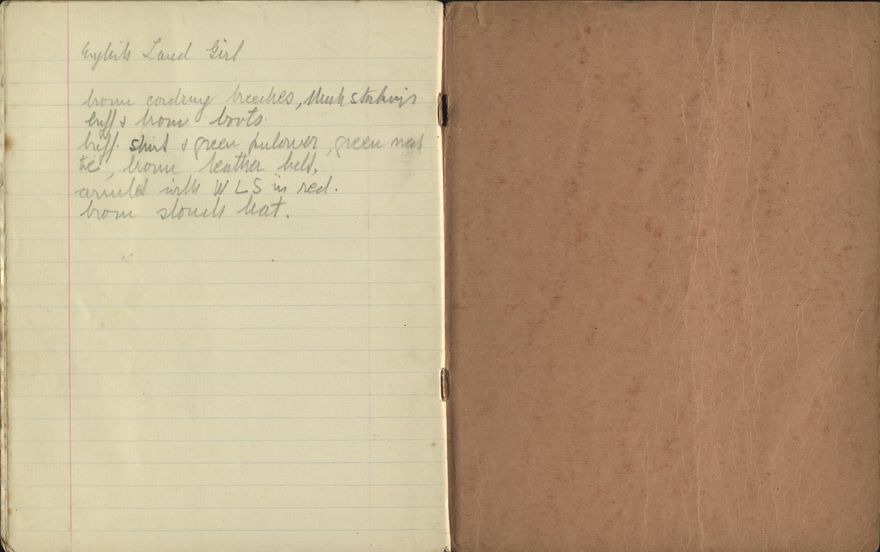 English Land Girl
brown corduroy breeches, thick stockings
buff & brown boots.
buff shirt & green pulover, green neck
tie, brown leather belt,
armlet with W L S in red.
brown slouch hat.